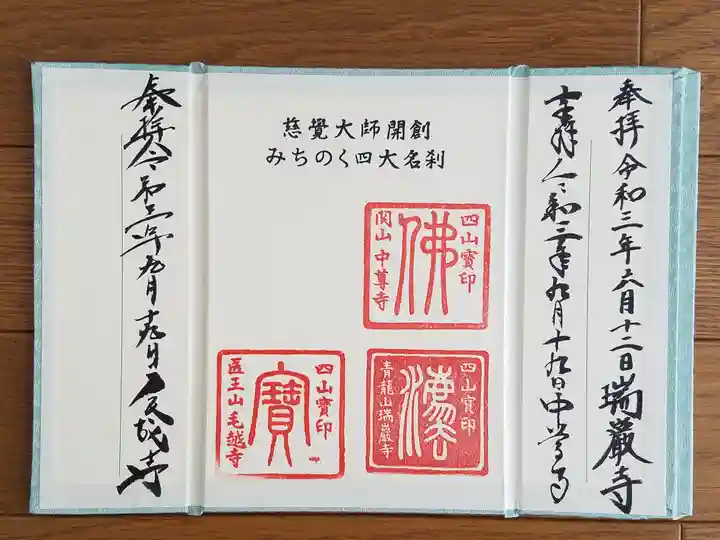 奉拝令和三年六月十二日瑞巖寺
奉拝令和三年九月十九日中尊寺
慈覺大師開創
みちのく四大名刹
四山寶印
佛
関山中尊寺
四山寶印
法
青龍山瑞巖寺
四山寶印
寶
医王山毛越寺
奉拝令和三年九月十九日毛越寺